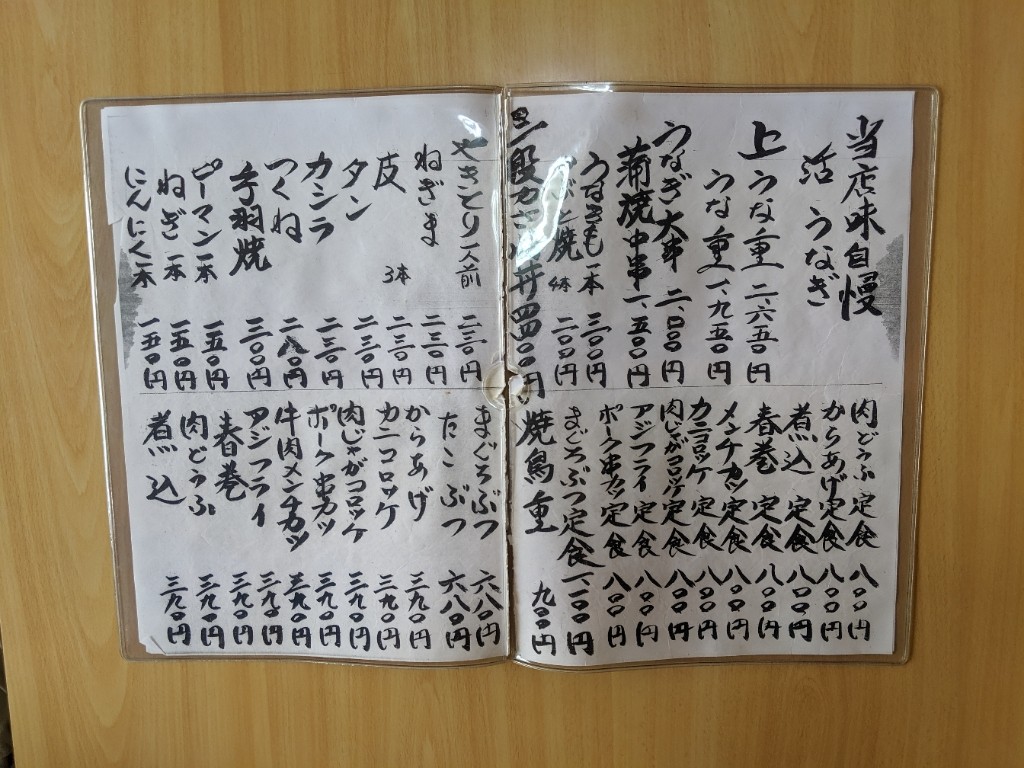 当店味自慢
活うなぎ
上うな重 二、六五〇円
うな重 一、九五〇円
うなぎ大串 二、〇〇〇円
蒲焼中串 一、五〇〇円
うなきも一本 三〇〇円
焼 4本 二〇〇円
三段かさね丼 四四〇〇円
肉どうふ定食 八〇〇円
からあげ定食 八〇〇円
煮込定食 八〇〇円
春巻定食 八〇〇円
メンチカツ定食 八〇〇円
カニコロッケ定食 八〇〇円
肉じゃがコロッケ定食 八〇〇円
アジフライ定食 八〇〇円
ポーク串カツ定食 八〇〇円
まぐろぶつ定食 一、一〇〇円
焼鳥重 九〇〇円
やきとり一人前 二三〇円
ねぎま 二三〇円
皮 3本 二三〇円
タン 二三〇円
カシラ 二三〇円
つくね 二八〇円
手羽焼 三〇〇円
ピーマン一本 一五〇円
ねぎ一本 一五〇円
にんにく一本 一五〇円
まぐろぶつ 六八〇円
たこぶつ 六八〇円
からあげ 三九〇円
カニコロッケ 三九〇円
肉じゃがコロッケ 三九〇円
ポーク串カツ 三九〇円
牛肉メンチカツ 三九〇円
アジフライ 三九〇円
春巻 三九〇円
肉どうふ 三九〇円
煮込 三九〇円